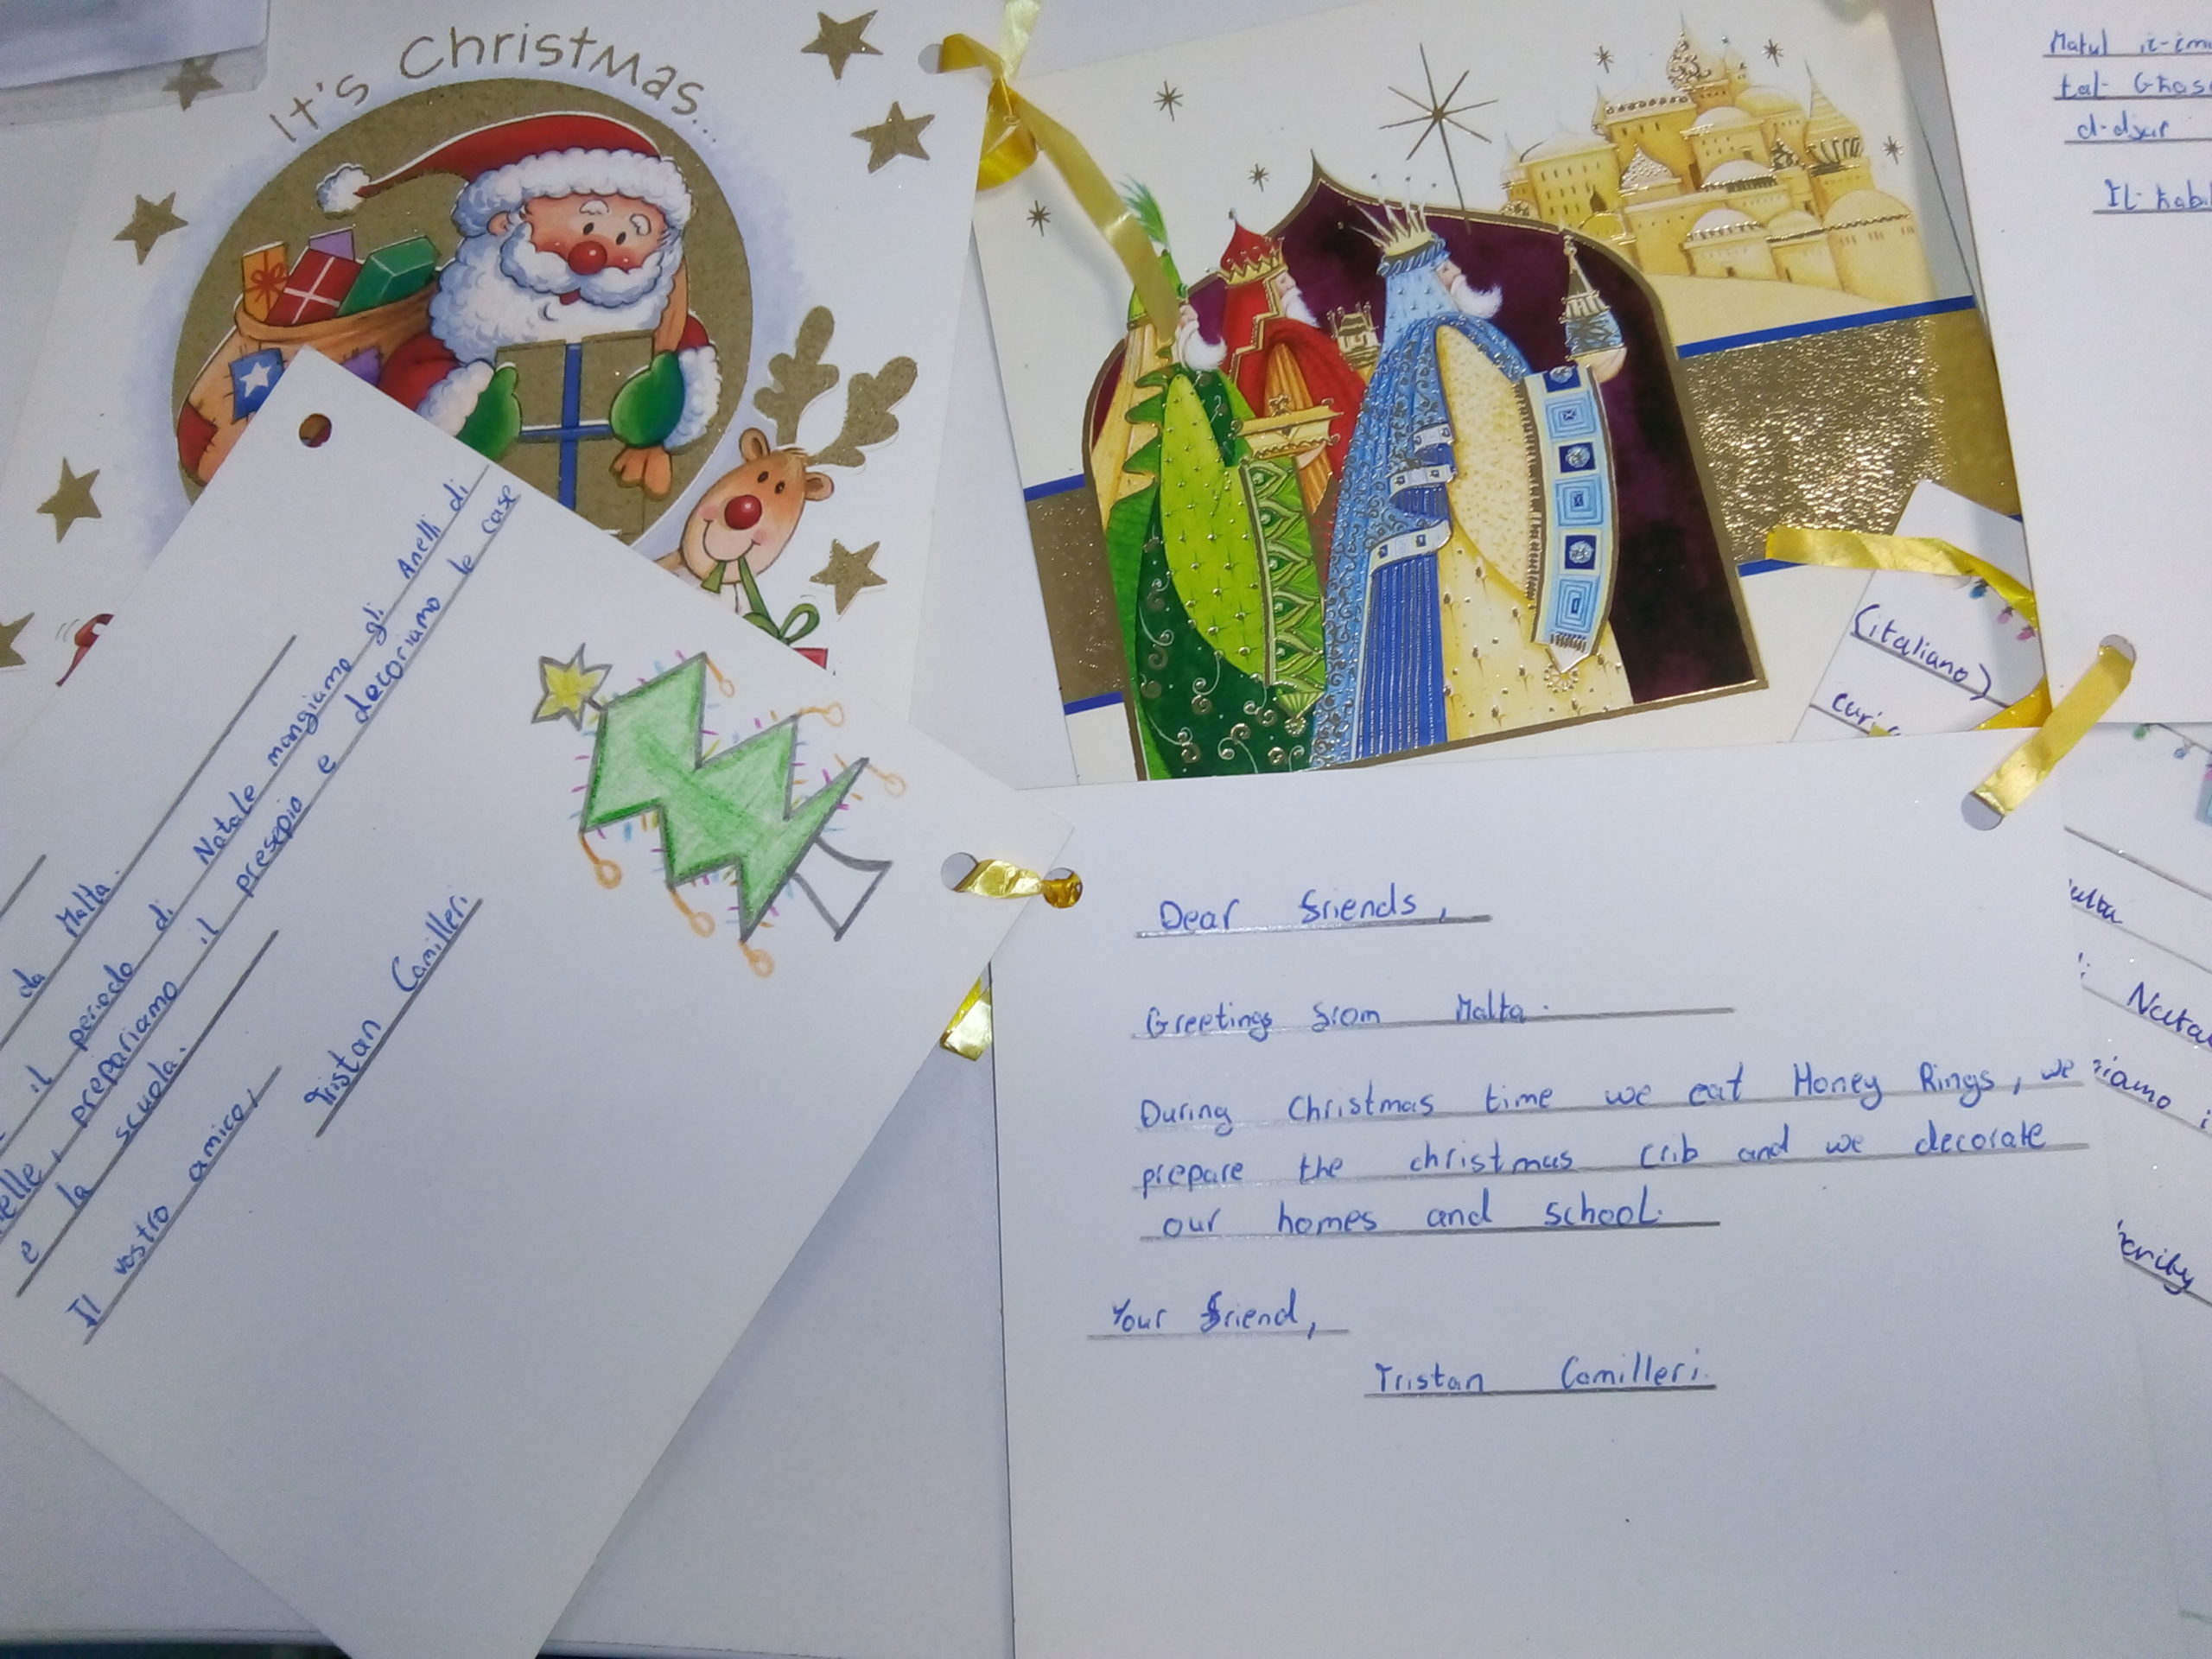 It's Christmas...
Matul iz-żm
tal- Għas
d-djar
Il-ħabi
(italiano)
da Malta.
il periodo di Natale mangiamo gli Anelli di
elle, prepariamo il presepio e decoriamo le case
e la scuola.
Il vostro amico,
Tristan Camilleri
Dear friends,
Greetings from Malta.
During Christmas time we eat Honey Rings, we
prepare the christmas crib and we decorate
our homes and school.
Your friend,
Tristan Camilleri.
Nata
iamo i